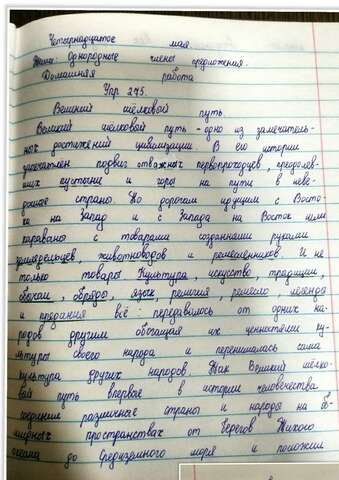 Четырнадцатое мая
Тема: Однородные члены предложения.
Домашняя работа
Упр 275.
Великий шёлковый путь
Великий шёлковый путь - одно из замечатель-
ных достижений цивилизации. В его истории
запечатлен подвиг отважных первопроходцев, преодолев-
ших пустыни и горы на пути в неве-
домые страны. По дорогам идущим с Восто-
ка на Запад и с Запада на Восток шли
караваны с товарами созданными руками
земледельцев, животноводов и ремесленников. И не
только товары Культура, искусство, традиции,
обычаи, обряды, язык, религия, ремесло, легенда
и предания всё: передавалось от одних на-
родов другим обогащая их ценностями ку-
льтуры своего народа и перенималась сама
культура других народов. Так Великий шёлко-
вый путь впервые в истории человечества
соединил различные страны и народы на
мирных пространствах от берегов Тихого
океана до Средиземного моря и положил